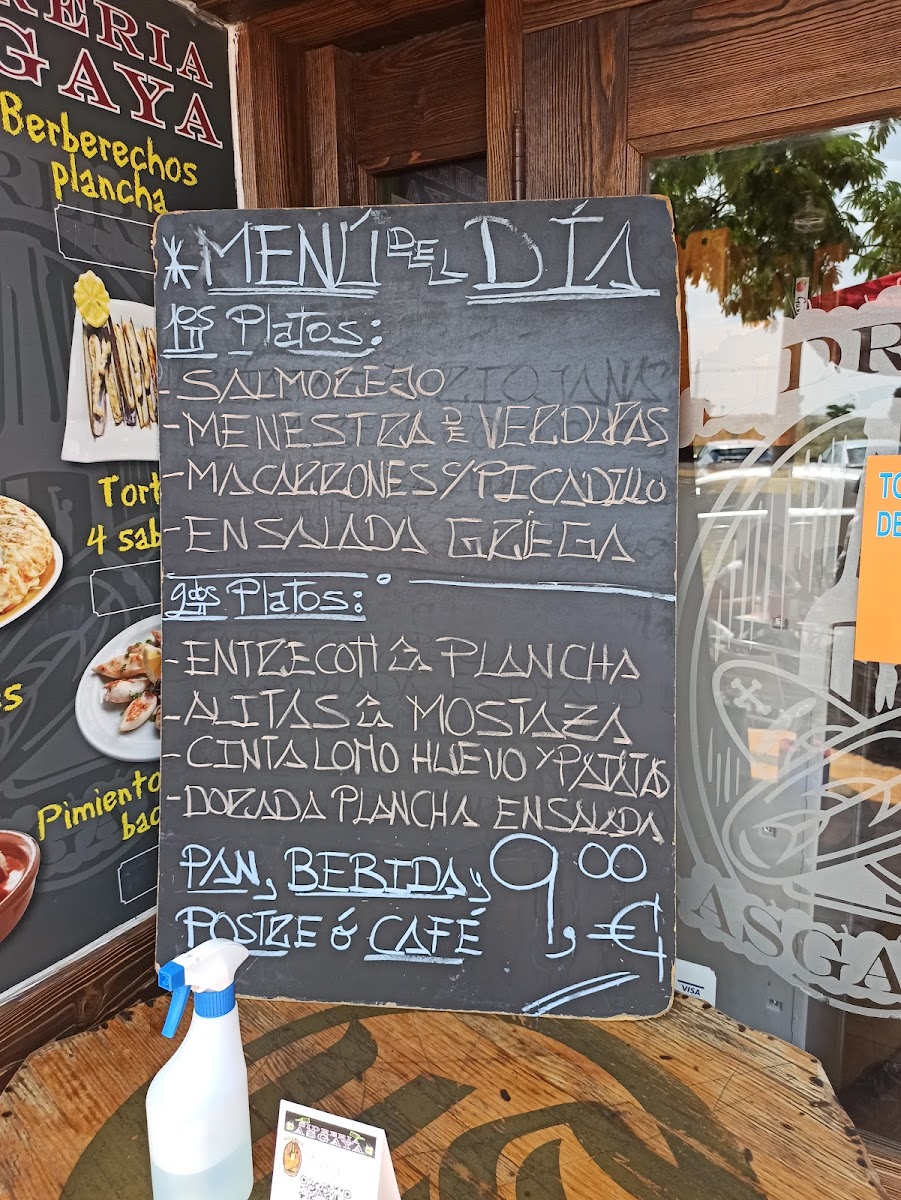 RERIA
GAYA
Berberechos
plancha
Tort
4 sab
es
Pimiento
bac
*MENÚ DEL DÍA
1os Platos:
-SALMOREJO
-MENESTRA DE VERDURAS
-MACARRONES C/ PICADILLO
-ENSALADA GRIEGA
2dos Platos:
-ENTRECOTH a la PLANCHA
-ALITAS a la MOSTAZA
-CINTA LOMO HUEVO Y PATATAS
-DORADA PLANCHA ENSALADA
PAN, BEBIDA y
POSTRE ó CAFÉ
9,00 €
DR
ASGA
TO
DE
VISA
SIDRERIA
ASGAYA